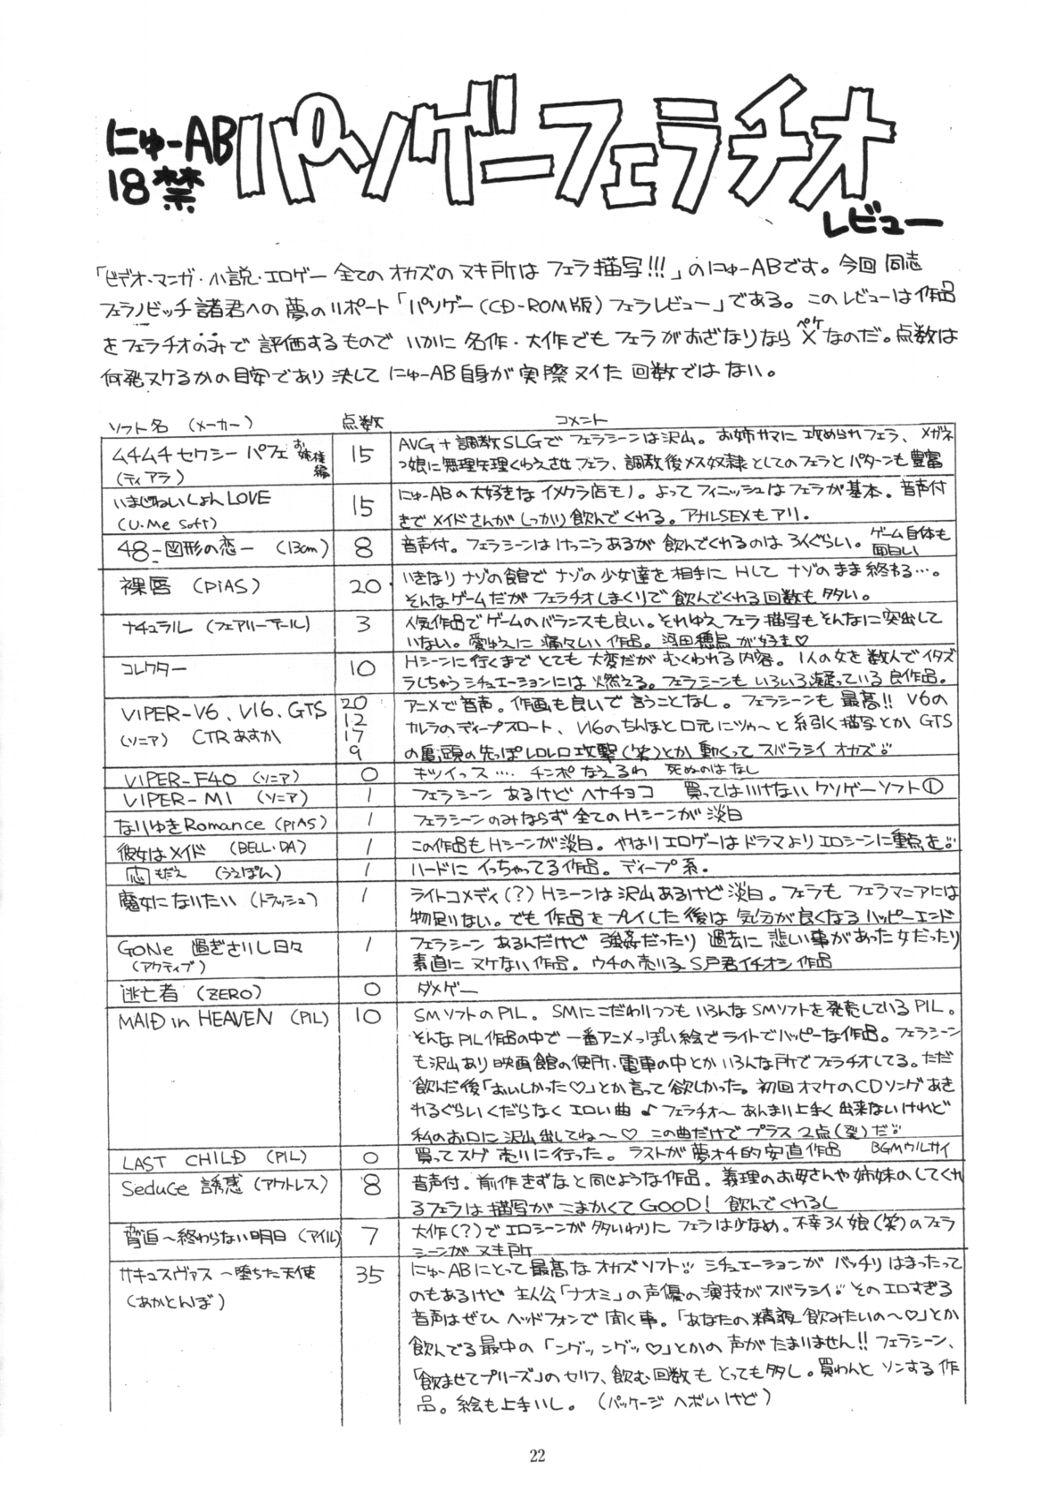 にゅーAB
18禁
パソゲーフェラチオ
レビュー
「ビデオ・マンガ・小説・エロゲー 全てのオカズのヌキ所は フェラ描写!!!」のにゅーABです。今回 同志
フェラノビッチ諸君への夢のリポート「パソゲー(CD-ROM版)フェラレビュー」である。このレビューは作品
をフェラチオのみで評価するもので いかに 名作・大作でも フェラがおざなりなら×なのだ。点数は
ペケ
何発ヌケるかの目安であり 決して にゅーAB自身が 実際ヌイた 回数ではない。
ソフト名 (メーカー) 点数 コメント
ムチムチセクシーパフェ お姉様編 15 AVG+調教SLGでフェラシーンは沢山。お姉サマに攻められフェラ、メガネ
(ティアラ) っ娘に無理矢理くわえさせフェラ、調教後メス奴隷としてのフェラとパターンも豊富
いまじねいしょんLOVE 15 にゅーABの大好きなイメクラ店モノ。よってフィニッシュはフェラが基本。音声付
(U・Me Soft) きでメイドさんがしっかり飲んでくれる。アナルSEXもアリ.
48-図形の恋- (13cm) 8 音声付。フェラシーンはけっこうあるが 飲んでくれるのは3人ぐらい。ゲーム自体も面白い
裸唇 (PIAS) 20 いきなりナゾの館でナゾの少女達を相手にHして ナゾのまま終わる…。
そんなゲームだがフェラチオしまくりで飲んでくれる回数も多い。
ナチュラル (フェアリーテール) 3 人気作品でゲームのバランスも良い。それゆえフェラ描写もそんなに突出して
いない。愛ゆえに 痛々しい 作品。
コレクター 10 Hシーンに行くまで とても 大変だが むくわれる内容。1人の女を数人でイタズ
ラしちゃうシチュエーションには燃える。フェラシーンもいろいろ凝っている良作品。
VIPER-V6、V16、GTS 20 アニメで音声。作画も良いで言うことなし。フェラシーンも最高!! V6の
(ソニア) CTRあすか 12 カルラのディープスロート、V16のちんぽと口元にツゥ〜と糸引く描写とか GTS
17 の亀頭の先っぽレロレロ攻撃(笑)とか 動くってスバラシイオカズ!!
9
VIPER-F40 (ソニア) 0 キツイっス…. チンポなえるわ 死ぬのはなし
VIPER-M1 (ソニア) 1 フェラシーン あるけど ヘナチョコ 買ってはいけない クソゲーソフト①
なりゆきRomance (PIAS) 1 フェラシーンのみならず全てのHシーンが淡白
彼女はメイド (BELL・DA) 1 この作品もHシーンが淡白。やはりエロゲーはドラマよりエロシーンに重点を!!
もだえ (うえぽん) 1 ハードに イっちゃってる作品。ディープ系.
魔女になりたい (トラッシュ) 1 ライトコメディ(?) Hシーンは沢山あるけど淡白。フェラもフェラマニアには
物足りない。でも作品をプレイした後は 気分が良くなるハッピーエンド
GONe 過ぎさりし日々 1 フェラシーン あるんだけど 強姦だったり 過去に悲しい事があった女だったり
(アクティブ) 素直に ヌケない作品。ウチの売り子S戸君イチオシ作品
逃亡者 (ZERO) 0 ダメゲー
MAID in HEAVEN (PIL) 10 SMソフトのPIL。SMにこだわりつつもいろんなSMソフトを発売しているPIL。
そんなPIL作品の中で一番アニメっぽい絵でライトでハッピーな作品。フェラシーン
も沢山あり映画館の便所・電車の中とかいろんな所でフェラチオしてる。ただ
飲んだ後「おいしかった♡」とか言って欲しかった。初回オマケのCDソングあき
れるぐらいくだらなくエロい曲 ♪フェラチオ〜あんまり上手く出来ないけれど
私のお口に沢山出してね〜♡ この曲だけでプラス2点(裂)だ!!
LAST CHILD (PIL) 0 買ってスグ 売りに行った。ラストが夢オチ的安直作品 BGMウルサイ
SeduCe 誘惑 (アウトレス) 8 音声付。前作きずなと同じような作品。義理のお母さんや姉妹のしてくれ
るフェラは描写がこまかくてGOOD! 飲んでくれるし
脅迫〜終わらない明日 (アイル) 7 大作(?)でエロシーンが多いわりに フェラは少なめ。不幸3人娘(笑)のフェラ
シーンがヌキ所
サキュスヴァス〜堕ちた天使 35 にゅーABにとって最高なオカズソフト!! シチュエーションがバッチリはまったって
(あかとんぼ) のもあるけど主人公「ナオミ」の声優の演技がスバラシイ!! そのエロすぎる
音声はぜひヘッドフォンで聞く事。「あなたの精液飲みたいの〜♡」とか
飲んでる最中の「ングッングッ♡」とかの声がたまりません!! フェラシーン、
「飲ませてプリーズ」のセリフ、飲む回数もとっても多し。買わんとソンする作
品。絵も上手いし。(パッケージヘボいけど)
22